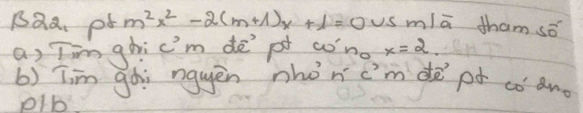 B22. pt m²x² - 2(m+1)x + 1 = 0 vs m là tham số
a) Tìm gtrị c² m để pt có no x = 2.
b) Tìm gtrị nguyên nhỏ n c² m để pt có 2no
p/b